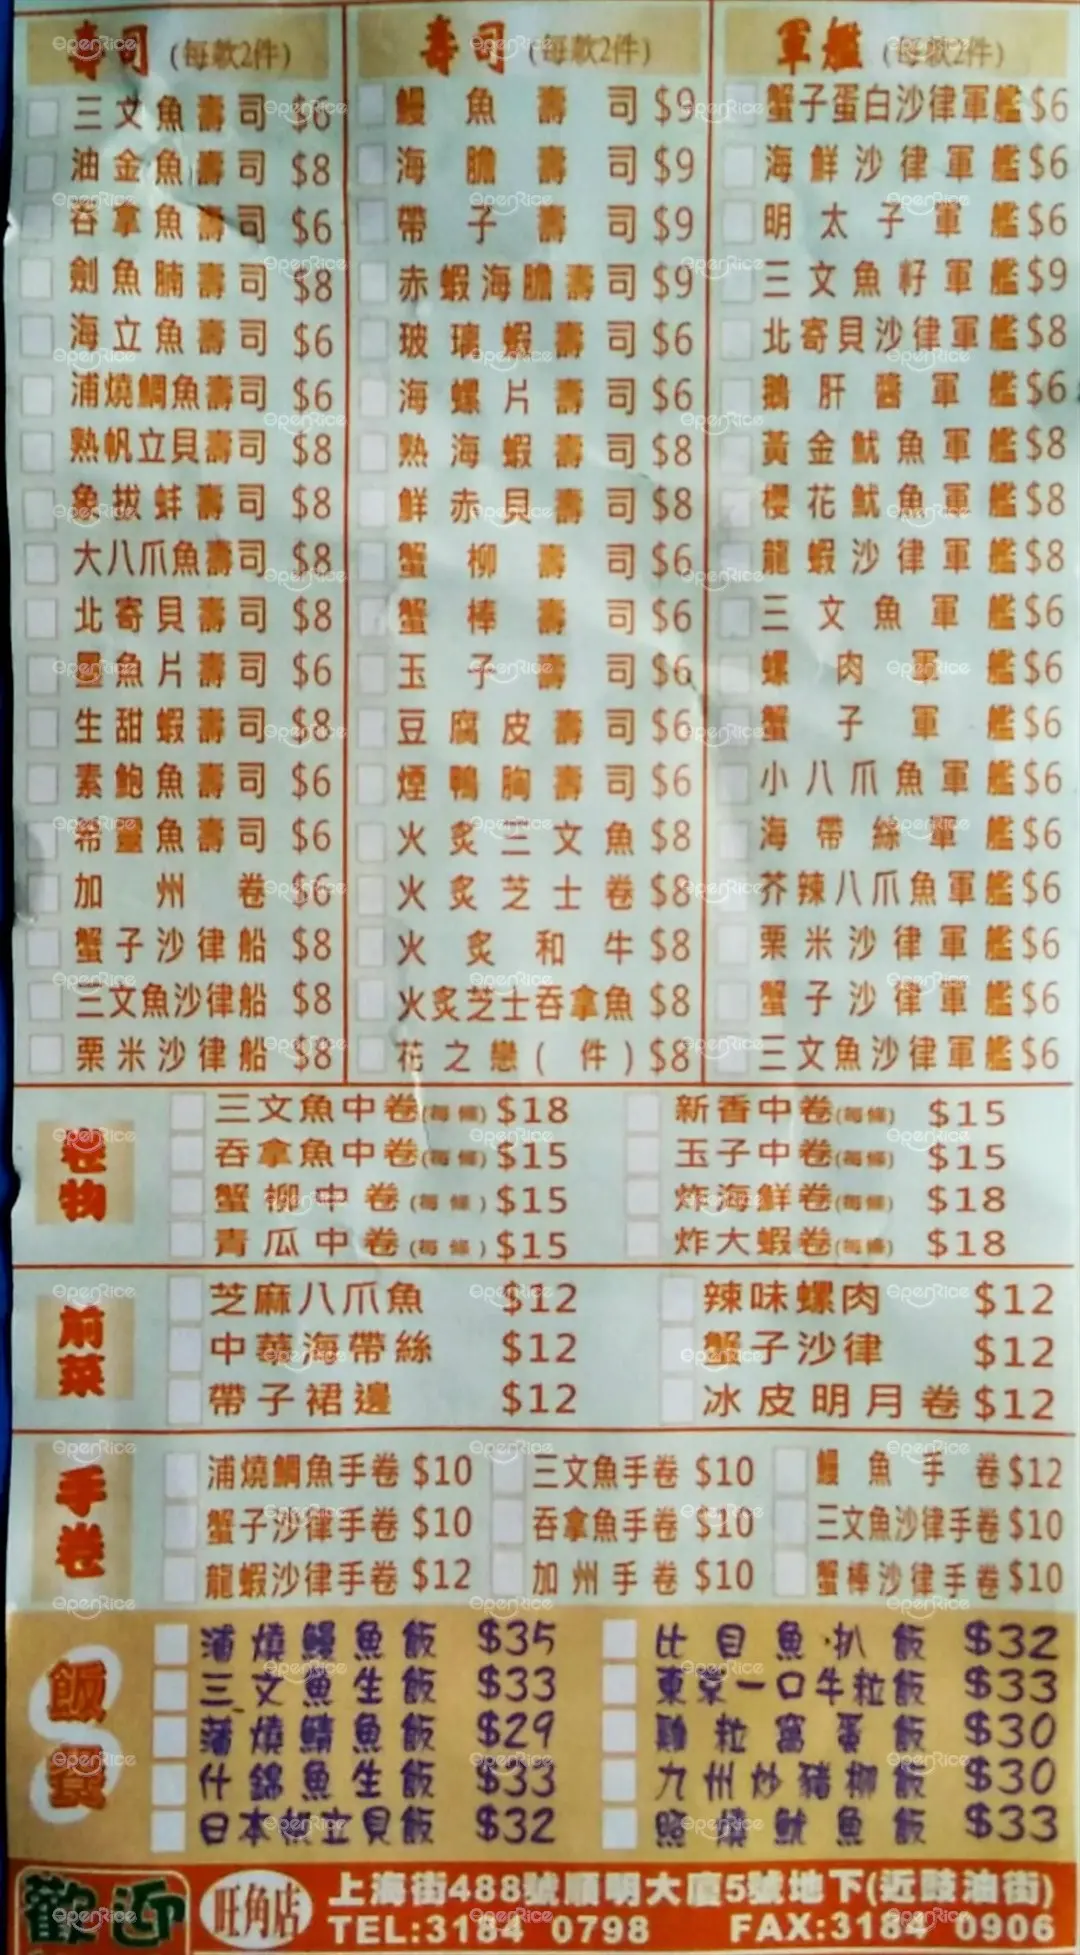 壽司 (每款2件)
三文魚壽司 $6
油金魚壽司 $8
吞拿魚壽司 $6
劍魚腩壽司 $8
海立魚壽司 $6
浦燒鯛魚壽司 $6
熟帆立貝壽司 $8
象拔蚌壽司 $8
大八爪魚壽司 $8
北寄貝壽司 $8
墨魚片壽司 $6
生甜蝦壽司 $8
素鮑魚壽司 $6
希靈魚壽司 $6
加州卷 $6
蟹子沙律船 $8
三文魚沙律船 $8
栗米沙律船 $8
壽司 (每款2件)
鰻魚壽司 $9
海膽壽司 $9
帶子壽司 $9
赤蝦海膽壽司 $9
玻璃蝦壽司 $6
海螺片壽司 $6
熟海蝦壽司 $8
鮮赤貝壽司 $8
蟹柳壽司 $6
蟹棒壽司 $6
玉子壽司 $6
豆腐皮壽司 $6
煙鴨胸壽司 $6
火炙三文魚 $8
火炙芝士卷 $8
火炙和牛 $8
火炙芝士吞拿魚 $8
花之戀(件) $8
軍艦 (每款2件)
蟹子蛋白沙律軍艦 $6
海鮮沙律軍艦 $6
明太子軍艦 $6
三文魚籽軍艦 $9
北寄貝沙律軍艦 $8
鵝肝醬軍艦 $6
黃金魷魚軍艦 $8
櫻花魷魚軍艦 $8
龍蝦沙律軍艦 $8
三文魚軍艦 $6
螺肉軍艦 $6
蟹子軍艦 $6
小八爪魚軍艦 $6
海帶絲軍艦 $6
芥辣八爪魚軍艦 $6
栗米沙律軍艦 $6
蟹子沙律軍艦 $6
三文魚沙律軍艦 $6
卷物
三文魚中卷(每條) $18
新香中卷(每條) $15
吞拿魚中卷(每條) $15
玉子中卷(每條) $15
蟹柳中卷(每條) $15
炸海鮮卷(每條) $18
青瓜中卷(每條) $15
炸大蝦卷(每條) $18
前菜
芝麻八爪魚 $12
辣味螺肉 $12
中華海帶絲 $12
蟹子沙律 $12
帶子裙邊 $12
冰皮明月卷 $12
手卷
浦燒鯛魚手卷 $10
三文魚手卷 $10
鰻魚手卷 $12
蟹子沙律手卷 $10
吞拿魚手卷 $10
三文魚沙律手卷 $10
龍蝦沙律手卷 $12
加州手卷 $10
蟹棒沙律手卷 $10
飯餐
蒲燒鰻魚飯 $35
比目魚扒飯 $32
三文魚生飯 $33
東京一口牛粒飯 $33
蒲燒鯖魚飯 $29
雞粒窩蛋飯 $30
什錦魚生飯 $33
九州炒豬柳飯 $30
日本帆立貝飯 $32
照燒魷魚飯 $33
歡迎
旺角店
上海街488號順明大廈5號地下(近豉油街)
TEL:3184 0798 FAX:3184 0906
OpenRice